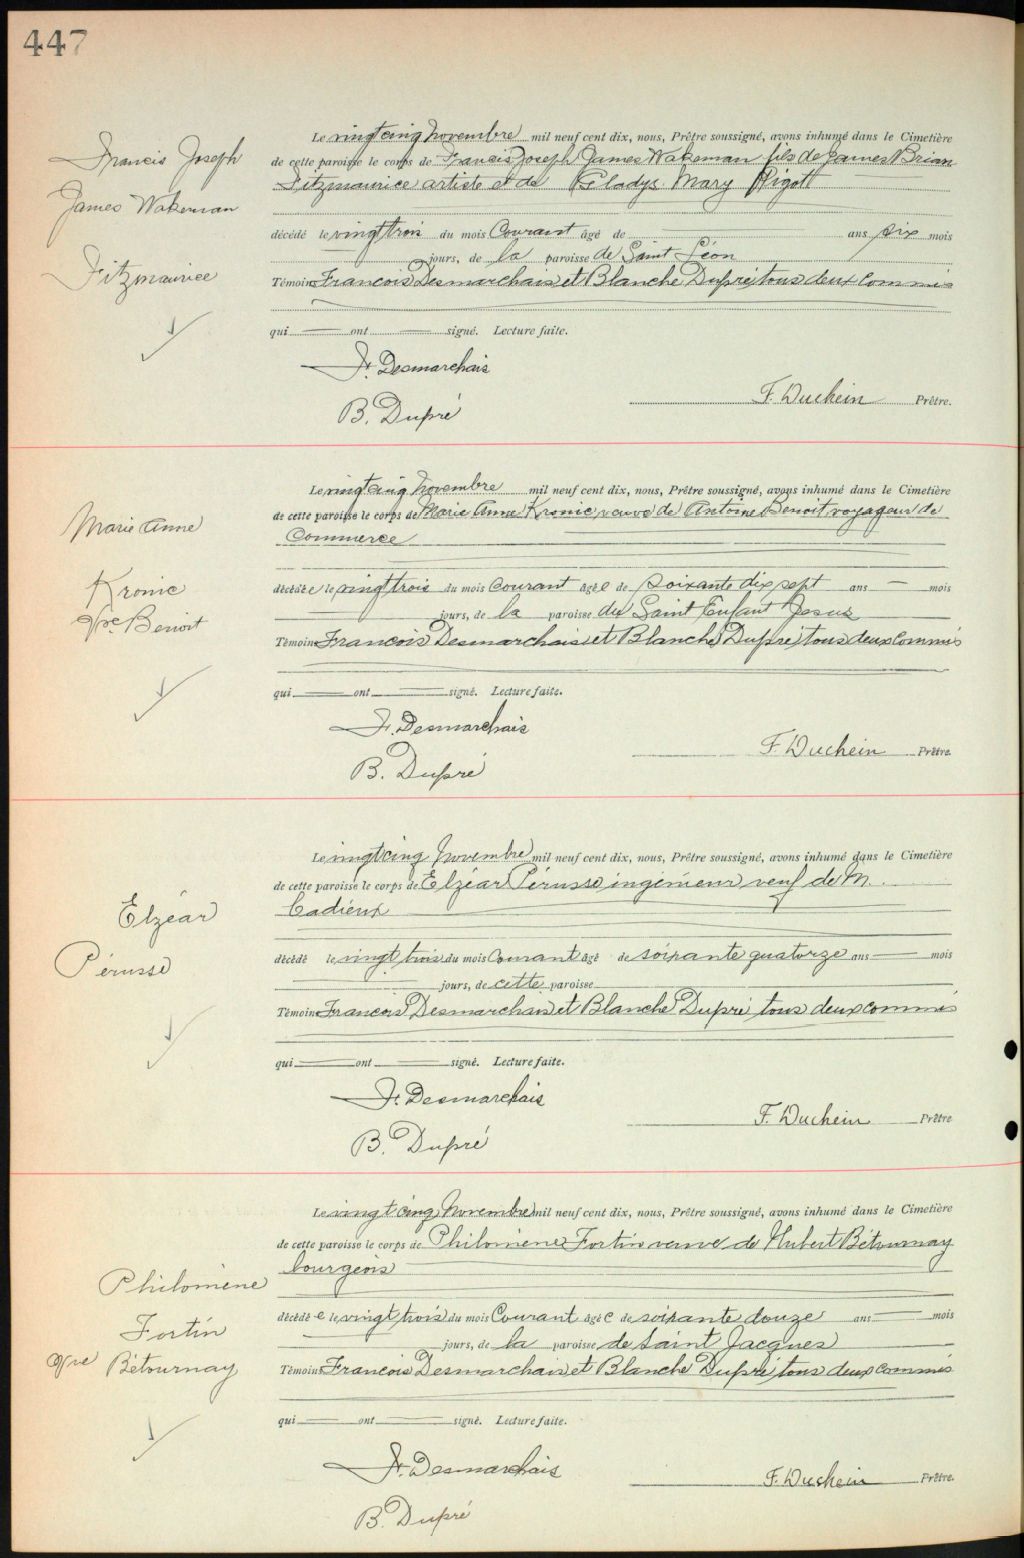 447
Francis Joseph
James Wakeman
Fitzmaurice
Le vingt cinq Novembre mil neuf cent dix, nous, Prêtre soussigné, avons inhumé dans le Cimetière
de cette paroisse le corps de Francis Joseph James Wakeman fils de James Brian
Fitzmaurice artiste et de Gladys Mary Pigott
décédé le vingt trois du mois Courant âgé de ans six mois
jours, de la paroisse de Saint Léon
Témoin Francois Desmarchais et Blanche Dupré tous deux commis
qui ont signé. Lecture faite.
Fr. Desmarchais
F. Duchein Prêtre.
B. Dupré
Marie Anne
Kronic
Vve Benoit
Le vingt cinq Novembre mil neuf cent dix, nous, Prêtre soussigné, avons inhumé dans le Cimetière
de cette paroisse le corps de Marie Anne Kronic veuve de Antoine Benoit voyageur de
Commerce
décédée le vingt trois du mois courant âgée de soixante dix sept ans mois
jours, de la paroisse du Saint Enfant Jesus
Témoin Francois Desmarchais et Blanche Dupré tous deux commis
qui ont signé. Lecture faite.
Fr. Desmarchais
F. Duchein Prêtre.
B. Dupré
Elzéar
Pérusse
Le vingt cinq Novembre mil neuf cent dix, nous, Prêtre soussigné, avons inhumé dans le Cimetière
de cette paroisse le corps de Elzéar Pérusse ingénieur veuf de M.
Cadieux
décédé le vingt trois du mois Courant âgé de soixante quatorze ans mois
jours, de cette paroisse
Témoin Francois Desmarchais et Blanche Dupré tous deux commis
qui ont signé. Lecture faite.
Fr. Desmarchais
F. Duchein Prêtre
B. Dupré
Philomène
Fortin
Vve Bétournay
Le vingt cinq Novembre mil neuf cent dix, nous, Prêtre soussigné, avons inhumé dans le Cimetière
de cette paroisse le corps de Philomène Fortin veuve de Hubert Bétournay
bourgeois
décédée le vingt trois du mois Courant âgée de soixante douze ans mois
jours, de la paroisse de Saint Jacques
Témoins Francois Desmarchais et Blanche Dupré tous deux commis
qui ont signé. Lecture faite.
Fr. Desmarchais
F. Duchein Prêtre.
B. Dupré